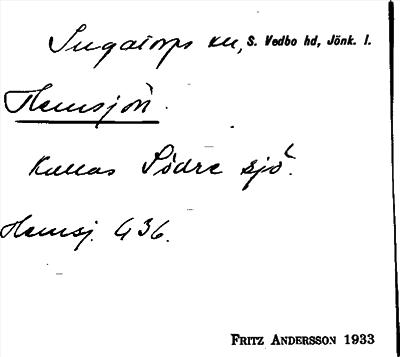 Ingatorps sn, S. Vedbo hd, Jönk. l.
Hemsjön
kallas Södra sjö.
Hemsj. G 36.
FRITZ ANDERSSON 1933